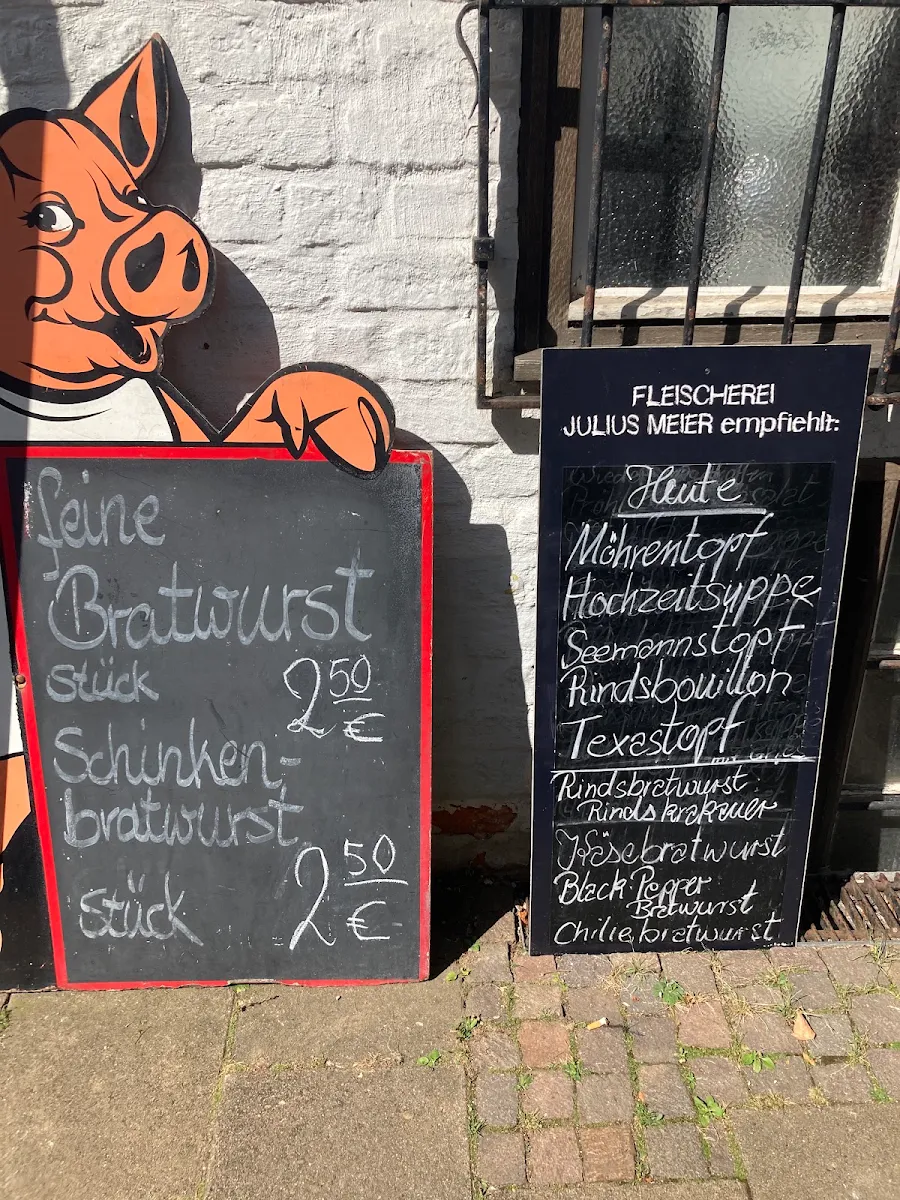 feine
Bratwurst
Stück 2 50 €
Schinken-
bratwurst
Stück 2 50 €
FLEISCHEREI
JULIUS MEIER empfiehlt:
Heute
Möhrentopf
Hochzeitsuppe
Seemannstopf
Rindsbouillon
Texastopf
Rindsbratwurst
Rindskrakauer
Käsebratwurst
Black Pepper
Bratwurst
Chiliebratwurst